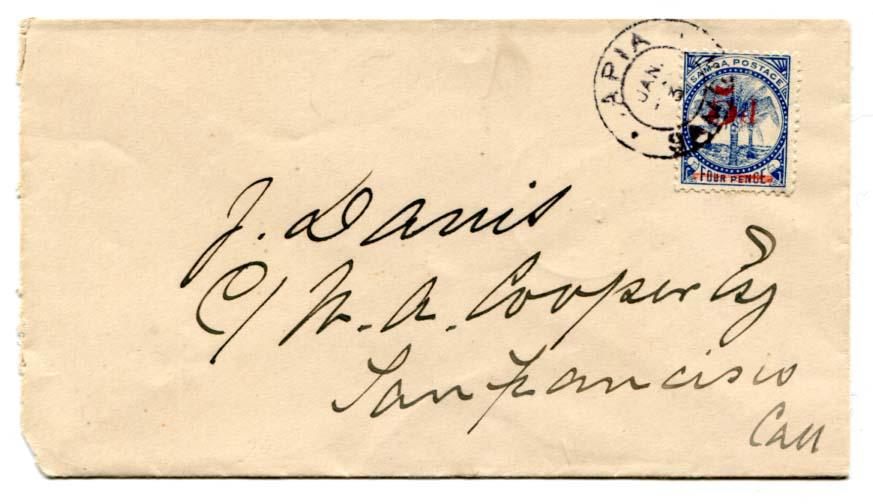 APIA
SAMOA
JAN.
SAMOA POSTAGE
5d
FOUR PENCE
J. Davis
C/ W. A. Cooper Esq
San Francisco
Call